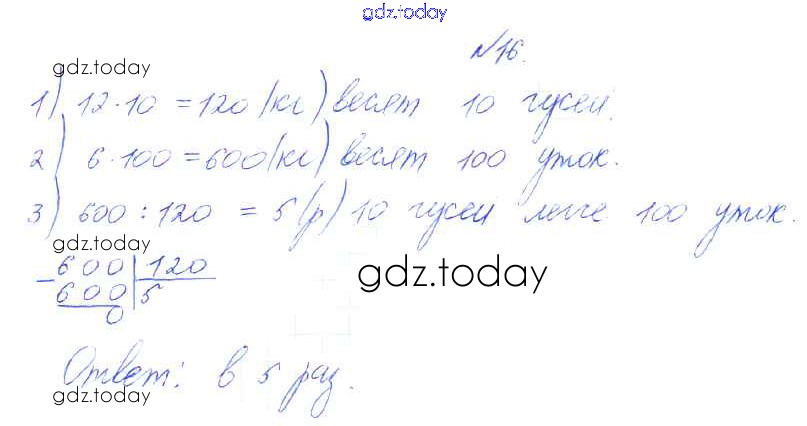 gdz.today
№16.
gdz.today
1) 12·10 = 120 (кг) весят 10 гусей.
2) 6·100 = 600 (кг) весят 100 уток.
3) 600 : 120 = 5 (р) 10 гусей легче 100 уток.
gdz.today
600 | 120
- 600 | 5
0
gdz.today
Ответ: в 5 раз.
gdz.today